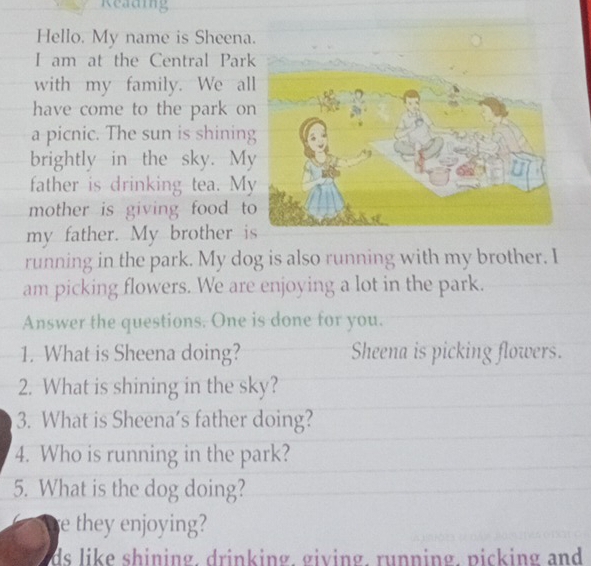 Reading
Hello. My name is Sheena.
I am at the Central Park
with my family. We all
have come to the park on
a picnic. The sun is shining
brightly in the sky. My
father is drinking tea. My
mother is giving food to
my father. My brother is
running in the park. My dog is also running with my brother. I
am picking flowers. We are enjoying a lot in the park.
Answer the questions. One is done for you.
1. What is Sheena doing? Sheena is picking flowers.
2. What is shining in the sky?
3. What is Sheena's father doing?
4. Who is running in the park?
5. What is the dog doing?
they enjoying?
like shining, drinking, giving, running, picking and